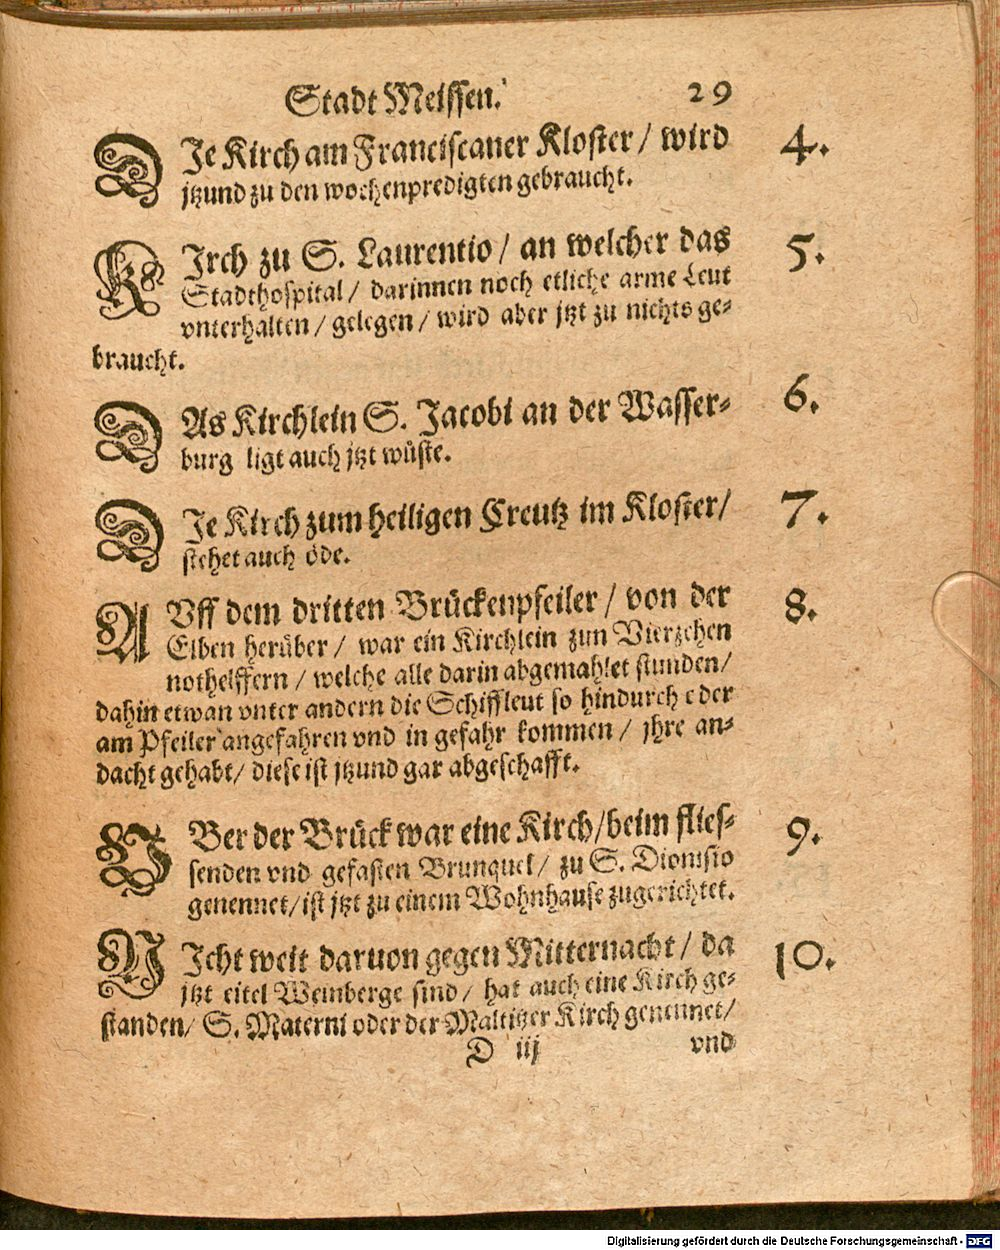 Stadt Meissen. 29
DIe Kirch am Franciscaner Kloster / wird 4.
jtzund zu den wochenpredigten gebraucht.
KIrch zu S. Laurentio / an welcher das 5.
Stadthospital / darinnen noch etliche arme Leut
vnterhalten / gelegen / wird aber jtzt zu nichts ge-
braucht.
DAs Kirchlein S. Jacobi an der Wasser- 6.
burg ligt auch jtzt wüste.
DIe Kirch zum heiligen Creutz im Kloster / 7.
stehet auch öde.
AVff dem dritten Brückenpfeiler / von der 8.
Elben herüber / war ein Kirchlein zun Vierzehen
nothelffern / welche alle darin abgemahlet stunden /
dahin etwan vnter andern die Schiffleut so hindurch oder
am Pfeiler angefahren vnd in gefahr kommen / jhre an-
dacht gehabt / diese ist jtzund gar abgeschafft.
VBer der Brück war eine Kirch / beim flies- 9.
senden vnd gefasten Brunquel / zu S. Dionisio
genennet / ist jtzt zu einem Wohnhause zugerichtet.
NIcht weit daruon gegen Mitternacht / da 10.
jtzt eitel Weinberge sind / hat auch eine Kirch ge-
standen / S. Materni oder der Maltitzer Kirch genennet /
D iij vnd
Digitalisierung gefördert durch die Deutsche Forschungsgemeinschaft - DFG